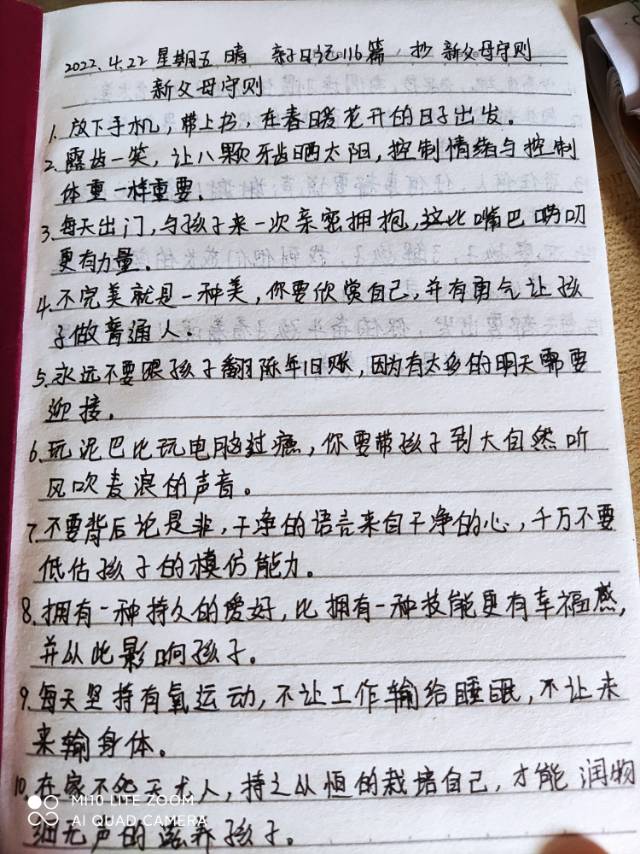 2022.4.22 星期五 晴 亲子日记116篇，抄 新父母守则
新父母守则
1、放下手机，带上书，在春暖花开的日子出发。
2、露齿一笑，让八颗牙齿晒太阳，控制情绪与控制
体重一样重要。
3、每天出门，与孩子来一次亲密拥抱，这比嘴巴唠叨
更有力量。
4、不完美就是一种美，你要欣赏自己，并有勇气让孩
子做普通人。
5、永远不要跟孩子翻陈年旧账，因为有太多的明天需要
迎接。
6、玩泥巴比玩电脑过瘾，你要带孩子到大自然听
风吹麦浪的声音。
7、不要背后论是非，干净的语言来自干净的心，千万不要
低估孩子的模仿能力。
8、拥有一种持久的爱好，比拥有一种技能更有幸福感，
并从此影响孩子。
9、每天坚持有氧运动，不让工作输给睡眠，不让未
来输身体。
10、在家不怨天尤人，持之从恒的栽培自己，才能润物
细无声的滋养孩子。
MI 10 LITE ZOOM
AI QUAD CAMERA